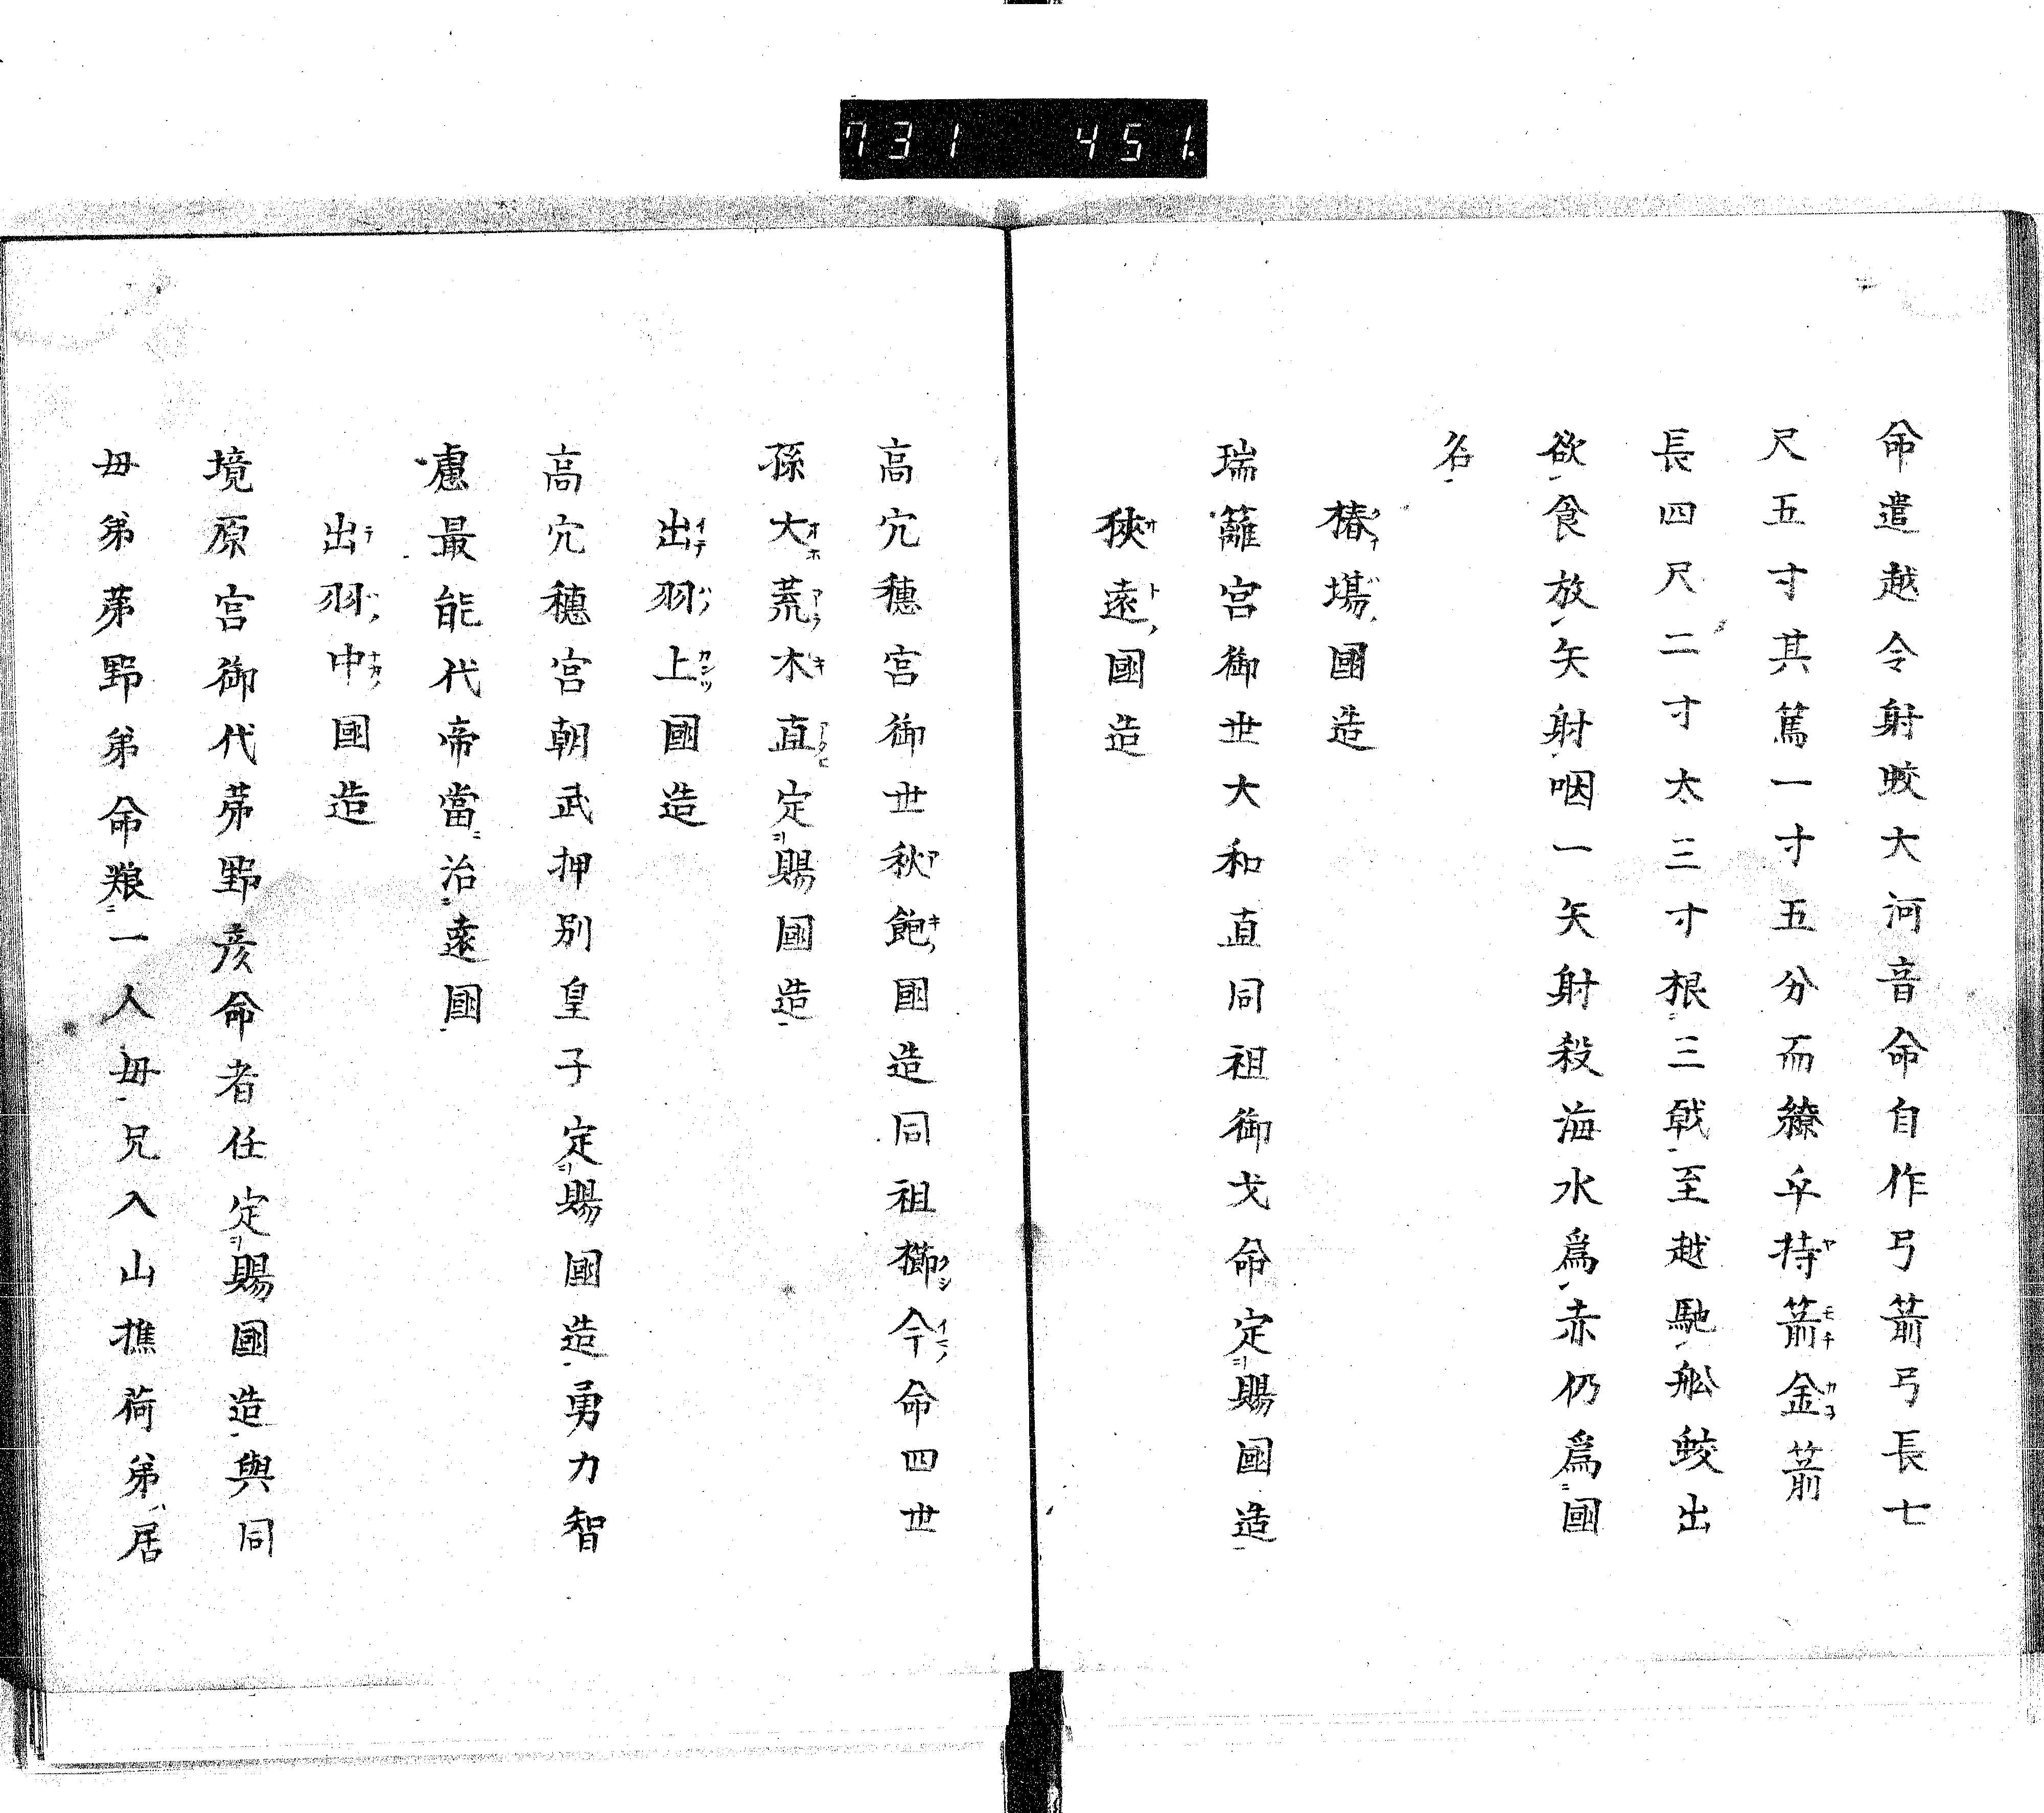 731 451
命遣越令射蛟大河音命自作弓箭弓長七
尺五寸其篤一寸五分而繚乎持箭金箭
長四尺二寸太三寸根三戟至越馳舩蛟出
欲食放矢射咽一矢射殺海水爲赤仍爲國
名
椿塲國造
瑞籬宮御世大和直同祖御戈命定賜國造
狹遠國造
高穴穗宮御世秋飽國造同祖櫛今命四世
孫大荒木直定賜國造
出羽上國造
高穴穗宮朝武押別皇子定賜國造勇力智
慮最能代帝當治遠國
出羽中國造
境原宮御代茀野彦命者任定賜國造與同
毋弟茀野弟命粮一人毋兄入山樵荷弟居